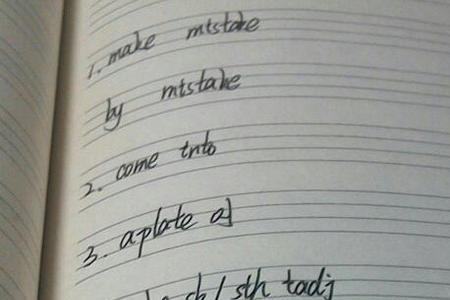 1. make mistake
by mistake
2. come into
3. a plate of
sb / sth + adj